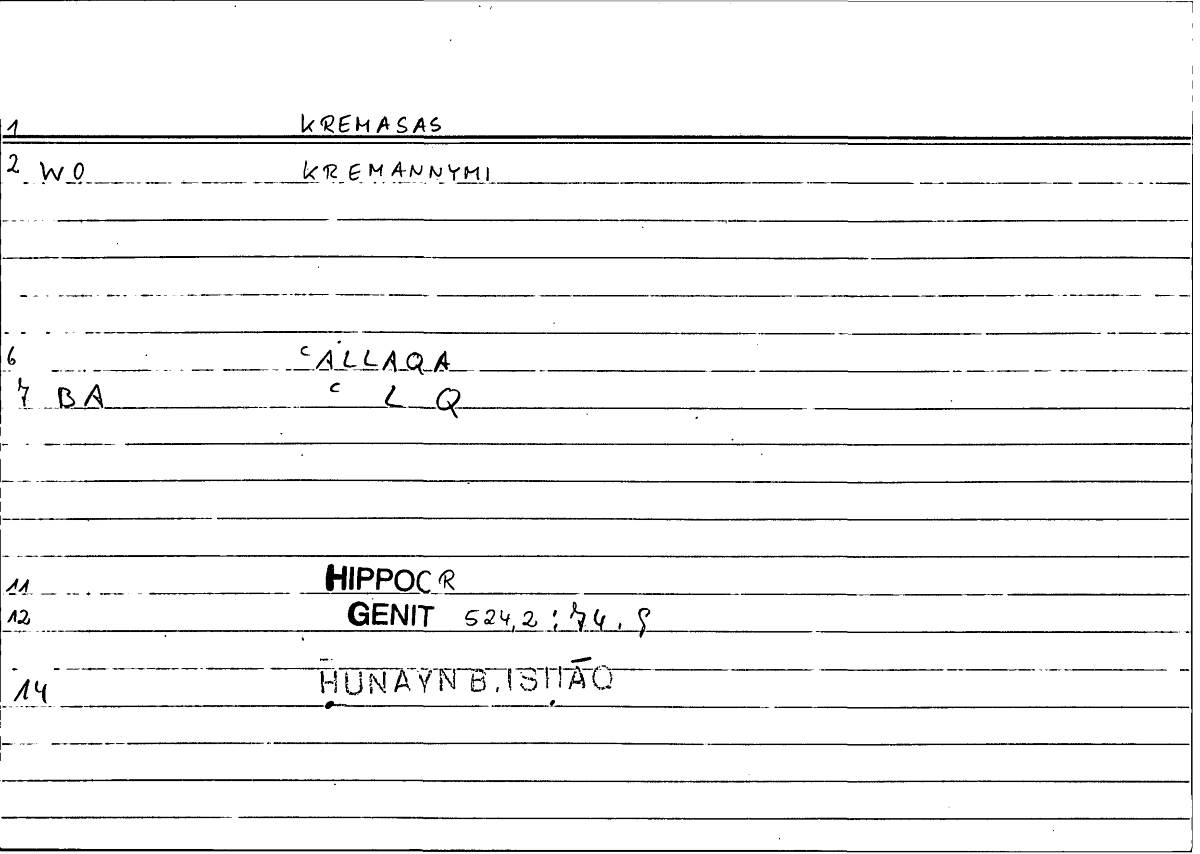 1 KREMASAS
2 WO KREMANNYMI
6 ʿALLAQA
7 BA ʿ L Q
11 HIPPOCR
12 GENIT 524,2 ; 74, 9
14 ḤUNAYN B. ISḤĀQ